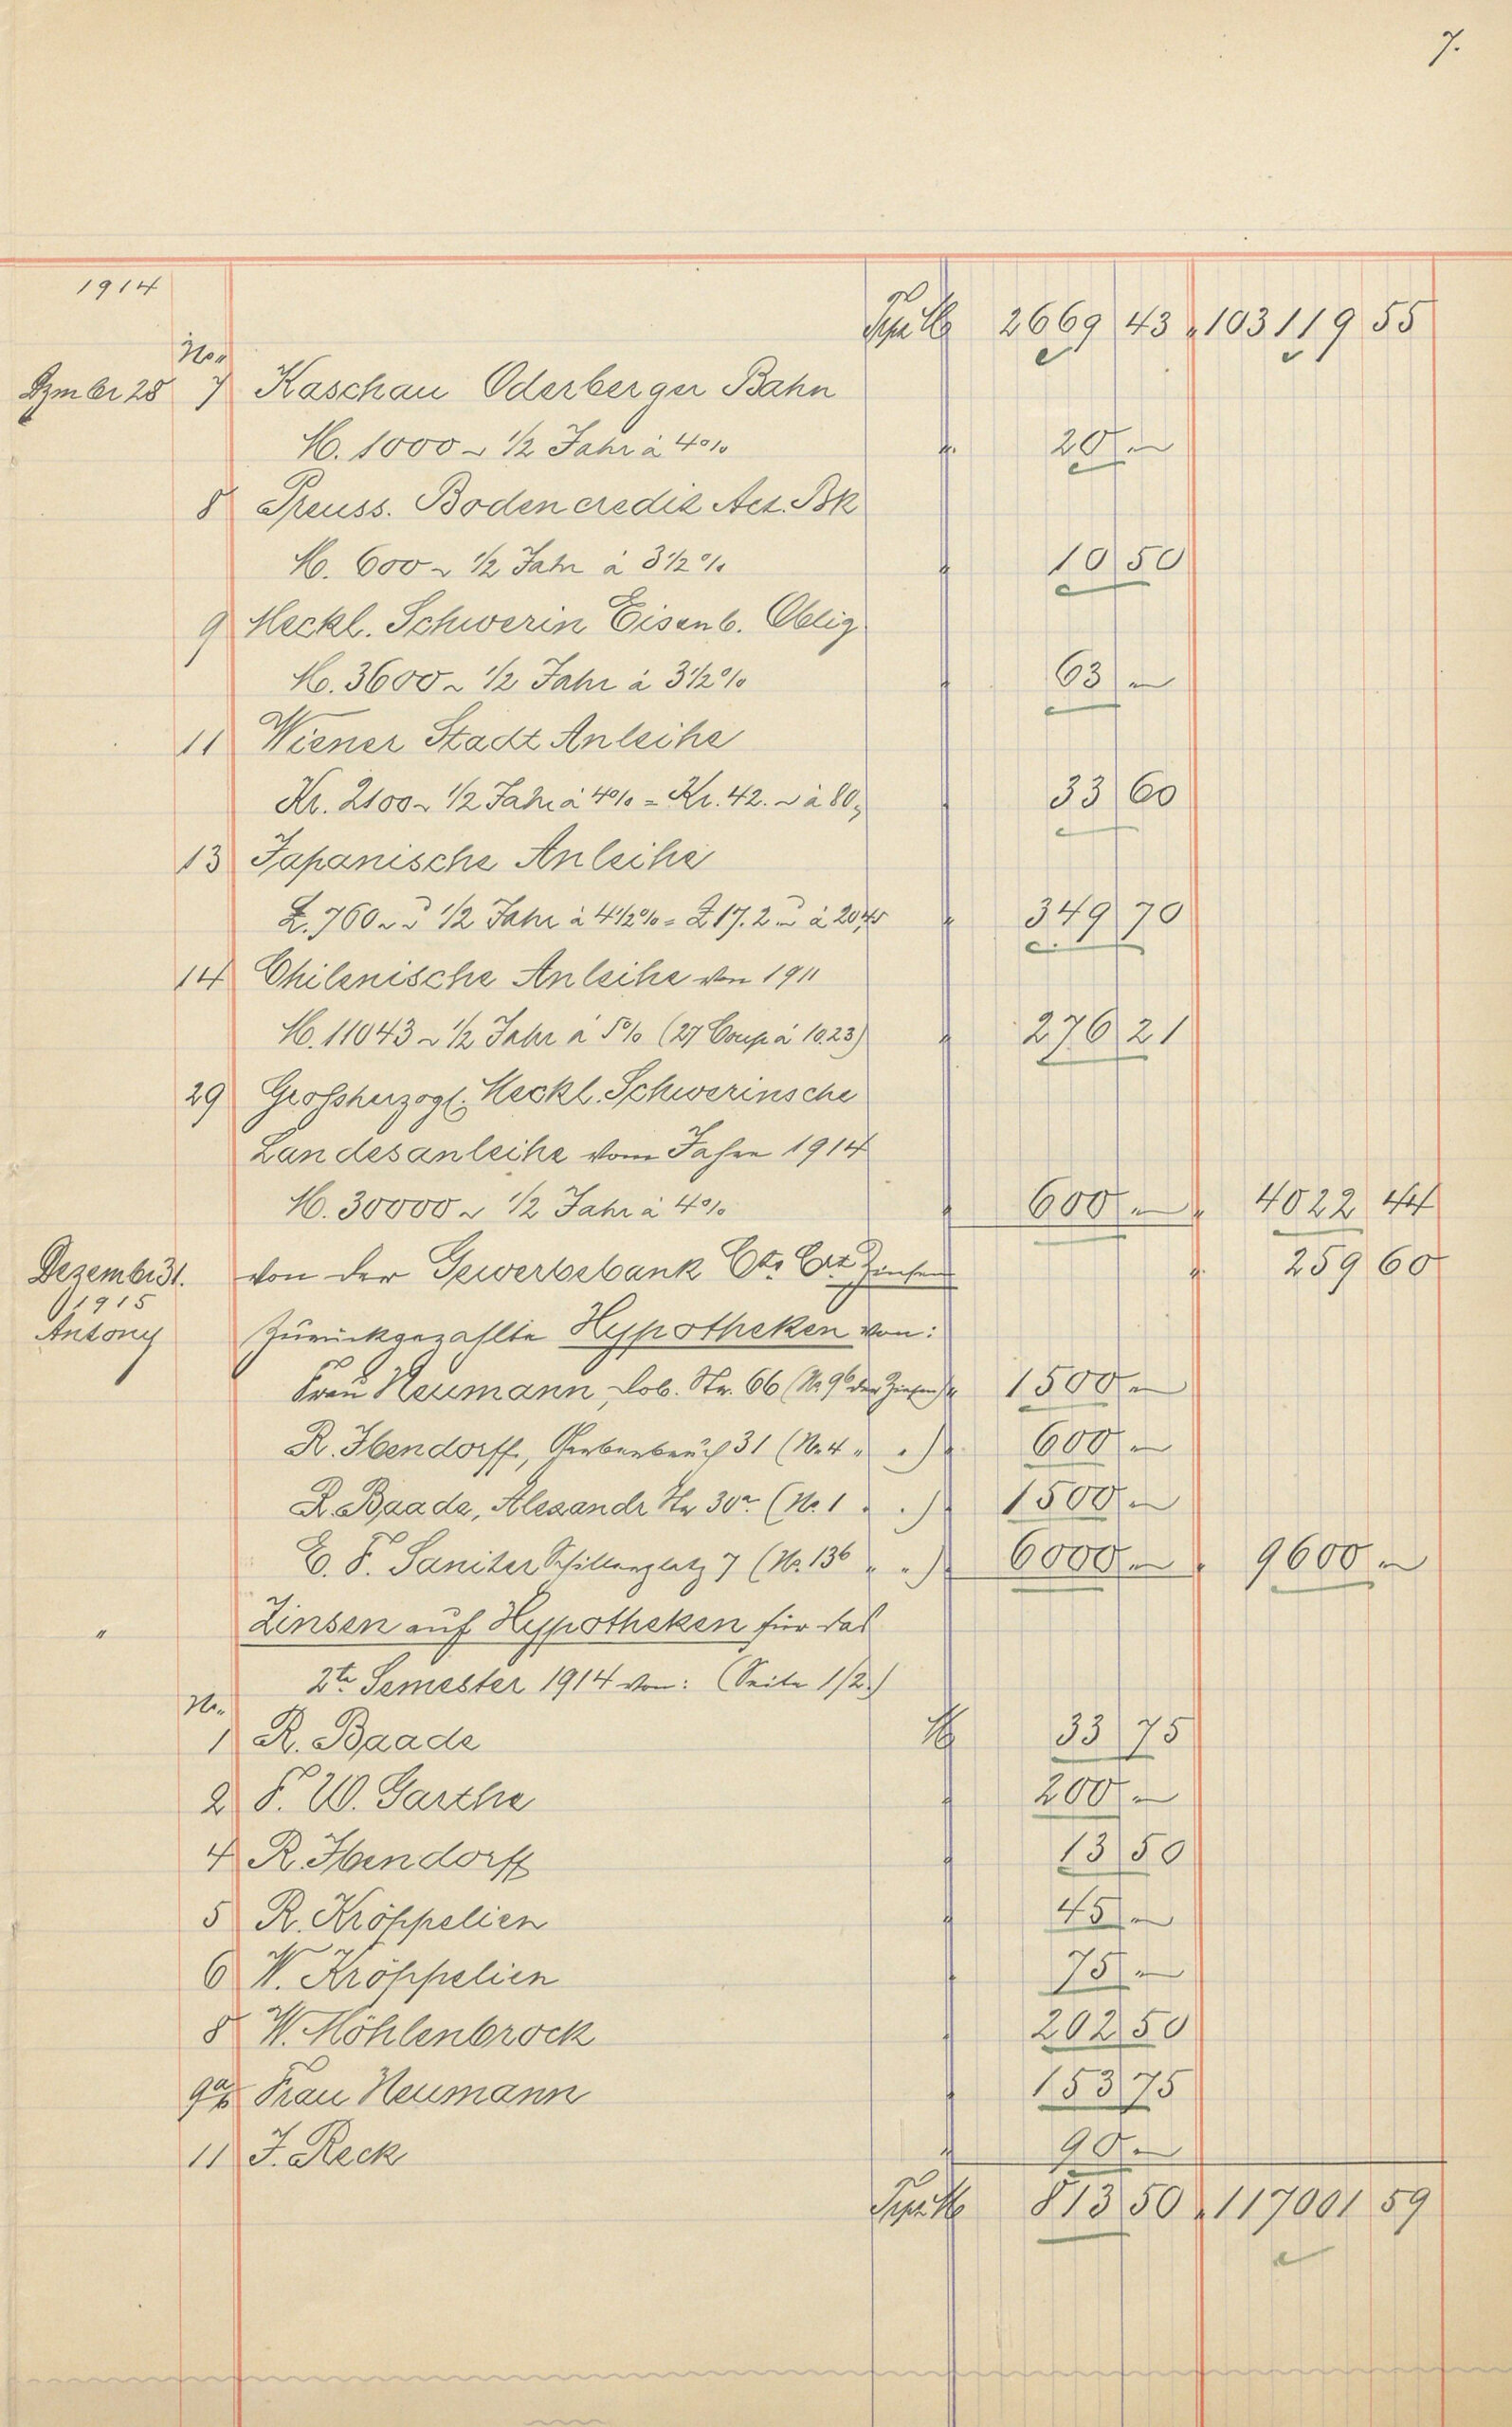 7.
1914
Tpt M 2669 43 " 103119 55
No.
Dzmber 28 7 Kaschau Oderberger Bahn
M. 1000 ~ 1/2 Jahr à 4% " 20 ~
8 Preuss. Bodencredit Act. Bk
M. 600 ~ 1/2 Jahr à 3 1/2 % " 10 50
9 Meckl. Schwerin Eisenb. Oblig
M. 3600 ~ 1/2 Jahr à 3 1/2 % " 63 ~
11 Wiener Stadt Anleihe
Kr. 2100 ~ 1/2 Jahr à 4% = Kr. 42. ~ à 80, " 33 60
13 Japanische Anleihe
£. 760 ~ ~ 1/2 Jahr à 4 1/2 % = £ 17. 2 ~ à 20,45 " 349 70
14 Chilenische Anleihe von 1911
M. 11043 ~ 1/2 Jahr à 5% (27 Coup à 10.23) " 276 21
29 Grossherzogl. Meckl. Schwerinsche
Landesanleihe vom Jahre 1914
M. 30000 ~ 1/2 Jahr à 4% " 600 ~ " 4022 44
Dezembr 31. von der Gewerbebank Cto Crt Zinsen " 259 60
1915
Antony Zurückgezahlte Hypotheken von:
Frau Neumann, Dob. Str. 66 (No 9b der Zinsen) " 1500 ~
R. Ibendorff, Gerberbruch 31 (No. 4 " ") " 600 ~
R. Baade, Alexandr Str 30a (No. 1 " ") " 1500 ~
E. F. Saniter Schillerplatz 7 (No. 13b " ") " 6000 ~ " 9600 ~
" Zinsen auf Hypotheken für das
2te Semester 1914 von: (Seite 1/2.)
No.
1 R. Baade M 33 75
2 F. W. Garthe " 200 ~
4 R. Ibendorff " 13 50
5 R. Kröppelien " 45 ~
6 W. Kröppelien " 75 ~
8 W. Möhlenbrock " 202 50
9a/b Frau Neumann " 153 75
11 J. Reck " 90 ~
Tpt M 813 50 " 117001 59